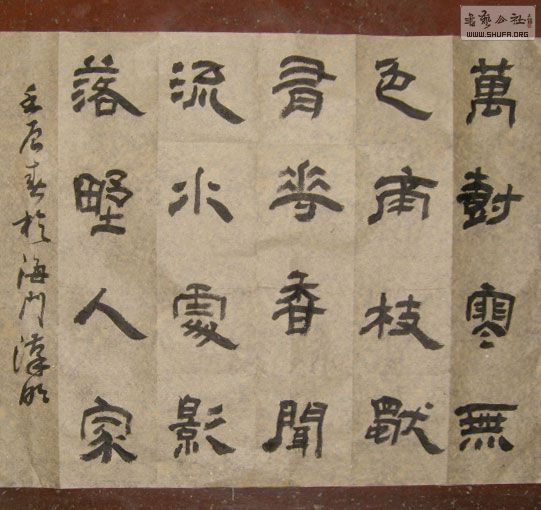 書藝公社
WWW.SHUFA.ORG
萬尌寒無
色南枝獨
有華香聞
流水處影
落野人家
壬辰春於海門漢明